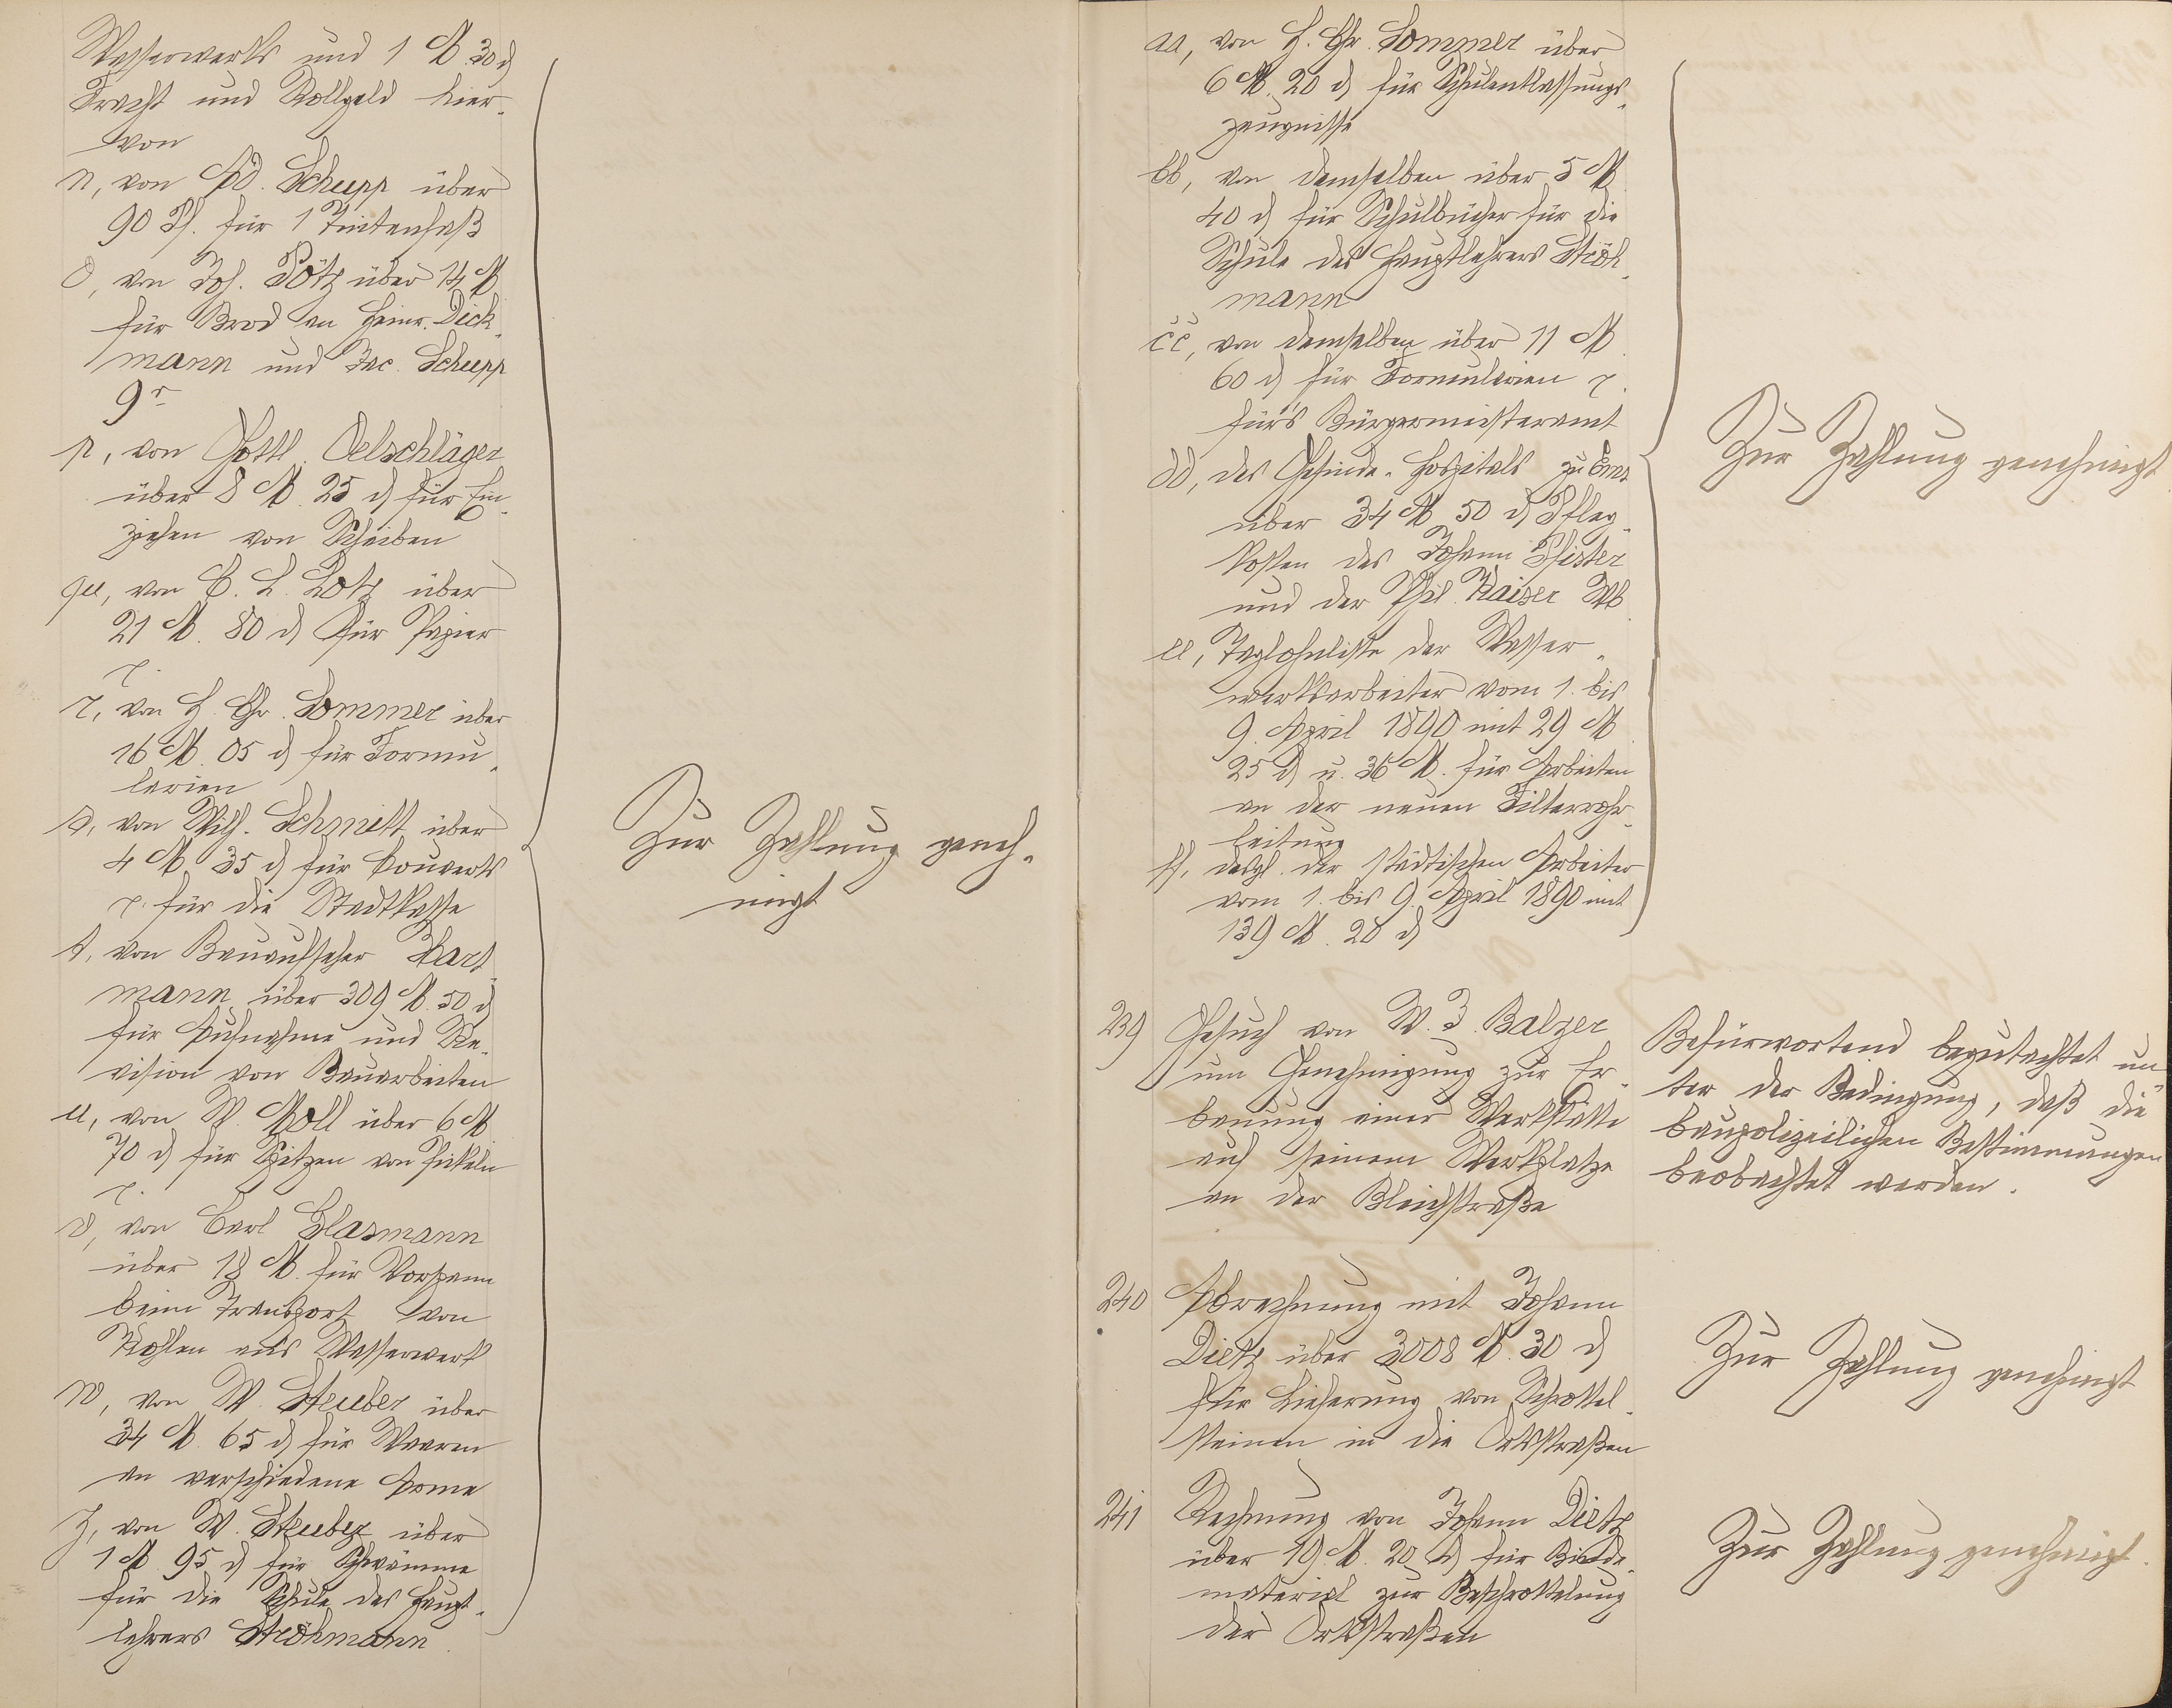 Wasserwerks und 1 M. 30 d
Fracht und Rollgeld hier-
von
n, von Ad. Schupp über
90 Pf. für 1 Tintenfaß
o, von Joh. Pötz über 14 M
für Brod an Heinr. Dick-
mann und Jac. Schupp
9r
p, von Gottl. Oelschläger
über 8 M. 25 d für Ein-
ziehen von Scheiben
qu, von C. L. Lotz über
21 M. 80 d für Papier
r.
r, von H. Chr. Sommer über
16 M. 05 d für Formu-
larien
s, von Wilh. Schmitt über
4 M. 35 d für Couverts
r. für die Stadtkasse
t, von Bauaufseher Hart-
mann über 309 M. 50 d
für Aufnahme und Re-
vision von Bauarbeiten
u, von W. Moll über 6 M
70 d für Spitzen von Pickeln
r.
v, von Carl Glasmann
über 18 M. für Vorspann
beim Transport von
Kohlen ans Wasserwerk
w, von W. Steuber über
34 M. 65 d für Waaren
an verschiedene Arme
z, von W. Steuber über
1 M. 95 d für Schwämme
für die Schule des Haupt-
lehrers Ströhmann.
Zur Zahlung geneh-
migt
aa, von H. Chr. Sommer über
6 M. 20 d für Schulentlassungs-
zeugnisse
bb, von demselben über 5 M
40 d für Schulbücher für die
Schule des Hauptlehrers Ströh-
mann
cc, von demselben über 11 M.
60 d für Formularien r.
für's Bürgermeisteramt
dd, des Gesinde-Hospitals zu Ems
über 34 M 50 d Pfleg-
kosten des Johann Pfister
und der Phil. Kaiser Wb.
ee, Taglohnliste der Wasser-
werksarbeiter vom 1. bis
9. April 1890 mit 29 M
25 d u. 36 M. für Arbeiten
an der neuen Filterrohr-
leitung
ff, desgl. der städtischen Arbeiter
vom 1. bis 9. April 1890 mit
139 M. 28 d
Zur Zahlung genehmigt
239 Gesuch von W. J. Balzer
um Genehmigung zur Er-
bauung einer Werkstätte
auf seinem Werkplatze
an der Bleichstraße
Befürwortend begutachtet un-
ter der Bedingung, daß die
baupolizeilichen Bestimmungen
beobachtet werden.
240 Abrechnung mit Johann
Dietz über 3008 M. 30 d
für Lieferung von Schrottel-
steinen in die Ortsstraßen
Zur Zahlung genehmigt
241 Rechnung von Johann Dietz
über 19 M. 20 d für Binde-
material zur Beschrottelung
der Ortsstraßen
Zur Zahlung genehmigt.